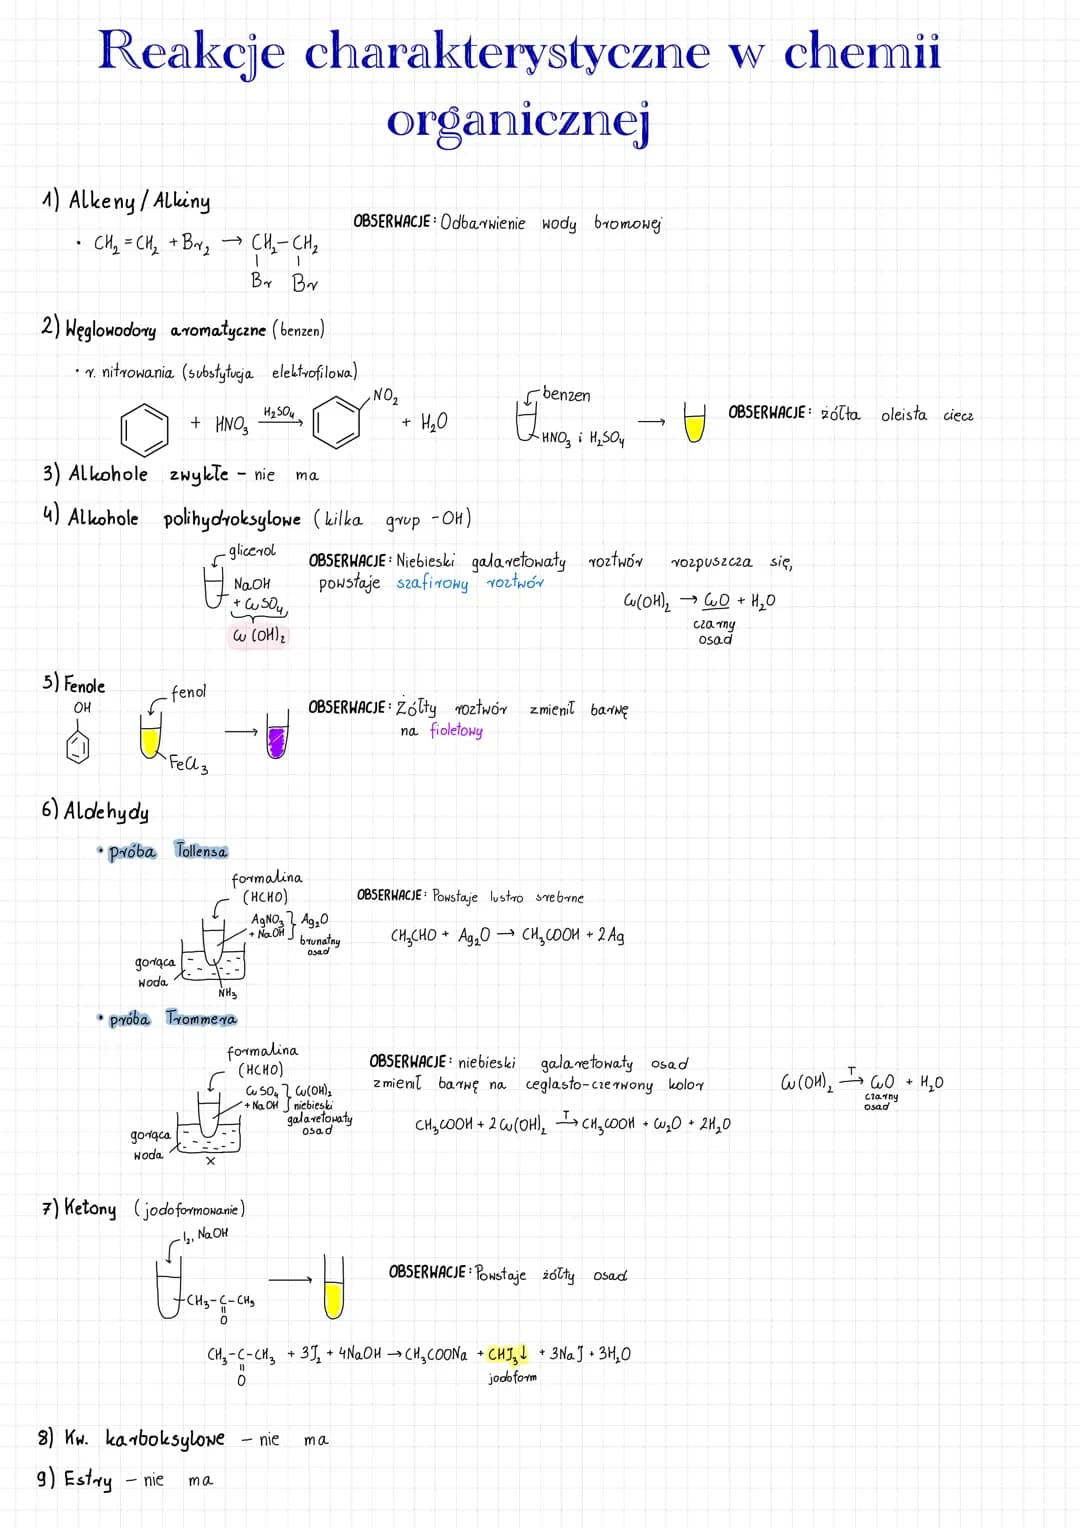 Reakcje charakterystyczne w chemii
organicznej
1) Alkeny / Alkiny
OBSERWACJE: Odbarwienie wody bromowej
• CH₂ = CH₂ + Br₂ → CH₂ – CH₂
Br Br
2) Węglowodory aromatyczne (benzen)
• r. nitrowania (substytucja elektrofilowa)
+ HNO₃ H₂SO₄ → NO₂ + H₂O
benzen
HNO₃ i H₂SO₄
OBSERWACJE: żółta oleista ciecz
3) Alkohole zwykłe – nie ma
4) Alkohole polihydroksylowe (kilka grup -OH)
glicerol
NaOH
+ CuSO₄
Cu(OH)₂
OBSERWACJE: Niebieski galaretowaty roztwór rozpuszcza się,
powstaje szafirowy roztwór
Cu(OH)₂ → CuO + H₂O
czarny
osad
5) Fenole
OH
fenol
FeCl₃
OBSERWACJE: Żółty roztwór zmienił barwę
na fioletowy
6) Aldehydy
• próba Tollensa
formalina
(HCHO)
AgNO₃ } Ag₂O
+ NaOH
brunatny
osad
gorąca
woda
NH₃
OBSERWACJE: Powstaje lustro srebrne
CH₃CHO + Ag₂O → CH₃COOH + 2Ag
• próba Trommera
formalina
(HCHO)
CuSO₄ } Cu(OH)₂
+ NaOH niebieski
galaretowaty
osad
gorąca
woda
x
OBSERWACJE: niebieski galaretowaty osad
zmienił barwę na ceglasto-czerwony kolor
CH₃COOH + 2Cu(OH)₂ T→ CH₃COOH + Cu₂O + 2H₂O
Cu(OH)₂ T→ CuO + H₂O
czarny
osad
7) Ketony (jodoformowanie)
I₂, NaOH
CH₃-C-CH₃
O
OBSERWACJE: Powstaje żółty osad
CH₃-C-CH₃ + 3J₂ + 4NaOH → CH₃COONa + CHJ₃↓ + 3NaJ + 3H₂O
O
jodoform
8) Kw. karboksylowe – nie ma
9) Estry – nie ma